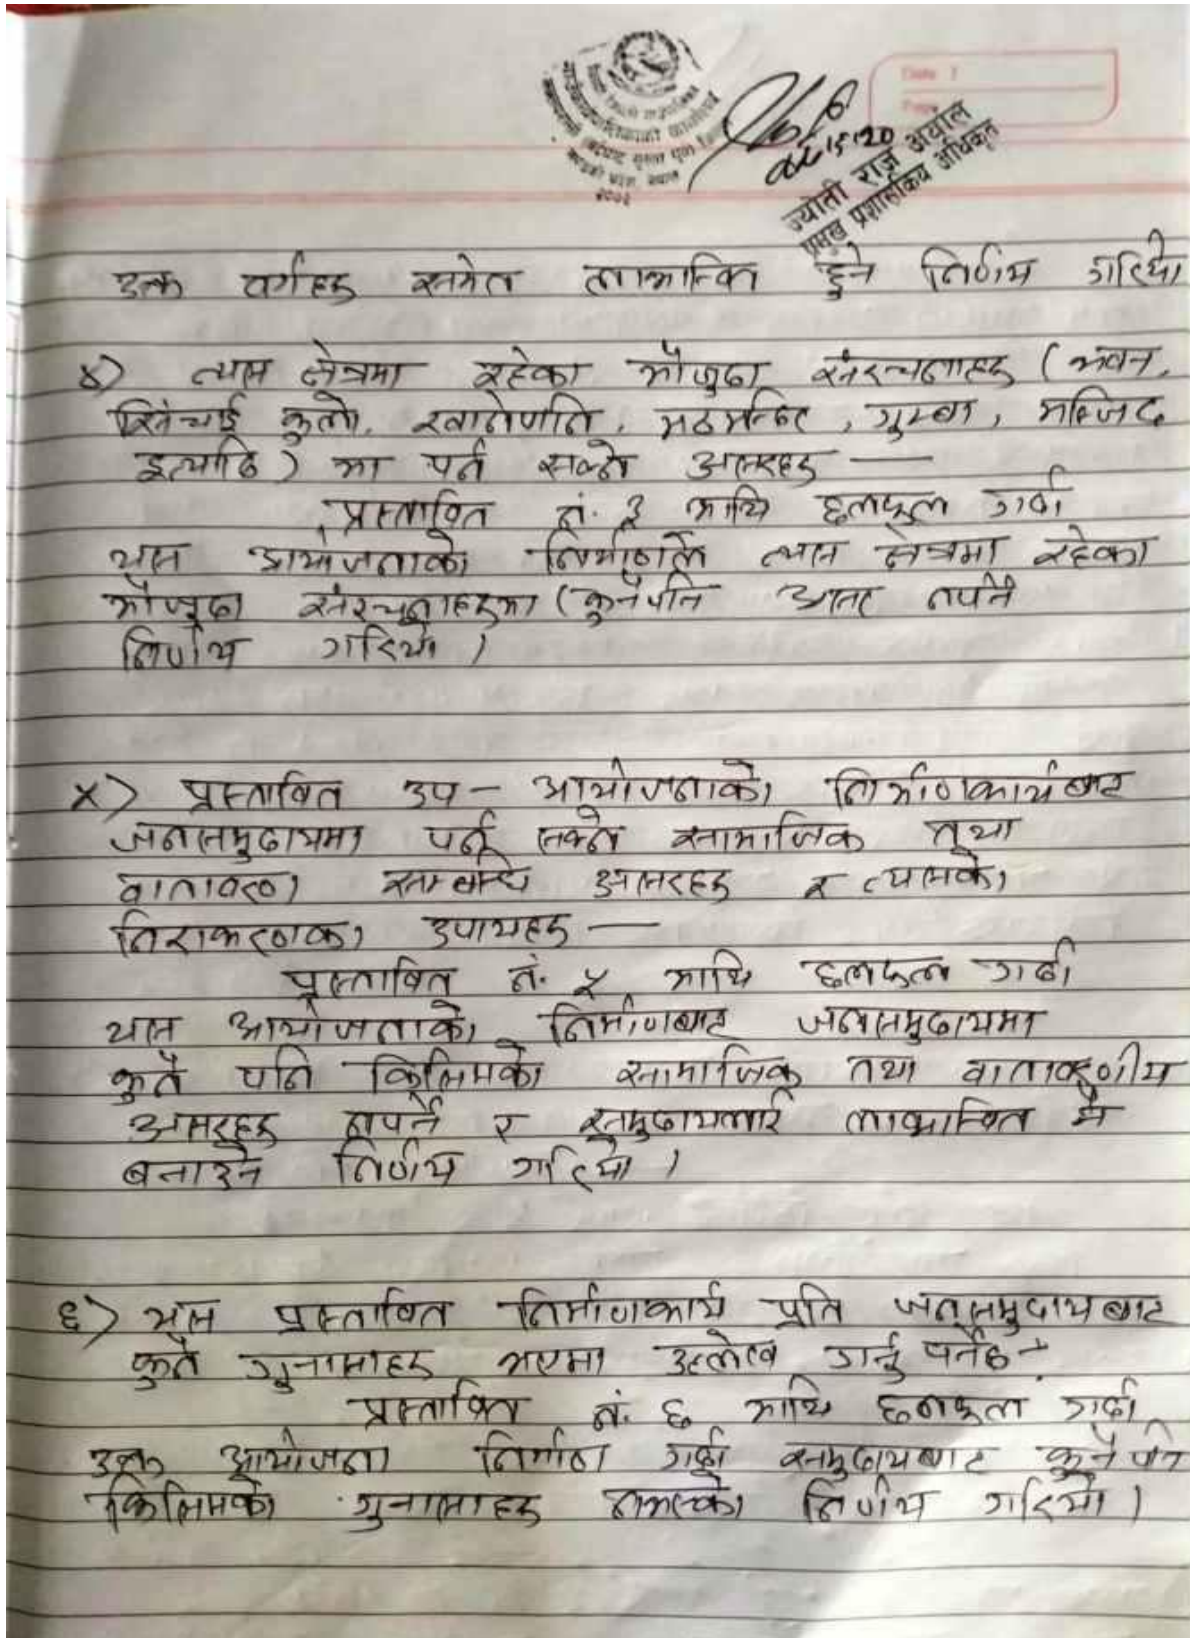 Date :
Page :
ज्योती राज अर्याल
प्रमुख प्रशासकिय अधिकृत
गण्डकी प्रदेश, नेपाल
उक्त वर्गहरु समेत लाभान्वित हुने निर्णय गरियो
४) त्यस क्षेत्रमा रहेका मौजुदा संरचनाहरु (भवन,
सिंचाई कुलो, खानेपानि, मठमन्दिर, गुम्बा, मस्जिद
इत्यादि) मा पर्न सक्ने असरहरु —
प्रस्तावित नं. ४ माथि छलफल गर्दा
यस आयोजनाको निर्माणले त्यस क्षेत्रमा रहेका
मौजुदा संरचनाहरुमा कुनैपनि असर नपर्ने
निर्णय गरियो ।
५) प्रस्तावित उप - आयोजनाको निर्माणकार्यबाट
जनसमुदायमा पर्न सक्ने सामाजिक तथा
वातावरण सम्बन्धि असरहरु र त्यसको
निराकरणका उपायहरु —
प्रस्तावित नं. ५ माथि छलफल गर्दा
यस आयोजनाको निर्माणबाट जनसमुदायमा
कुनै पनि किसिमको सामाजिक तथा वातावरणीय
असरहरु नपर्ने र समुदायलाई लाभान्वित नै
बनाउने निर्णय गरियो ।
६) यस प्रस्तावित निर्माणकार्य प्रति जनसमुदायबाट
कुनै गुनासाहरु भएमा उल्लेख गर्नु पर्नेछ -
प्रस्तावित नं. ६ माथि छलफल गर्दा
उक्त आयोजना निर्माण गर्दा समुदायबाट कुनै पनि
किसिमको गुनासाहरु नभएको निर्णय गरियो ।